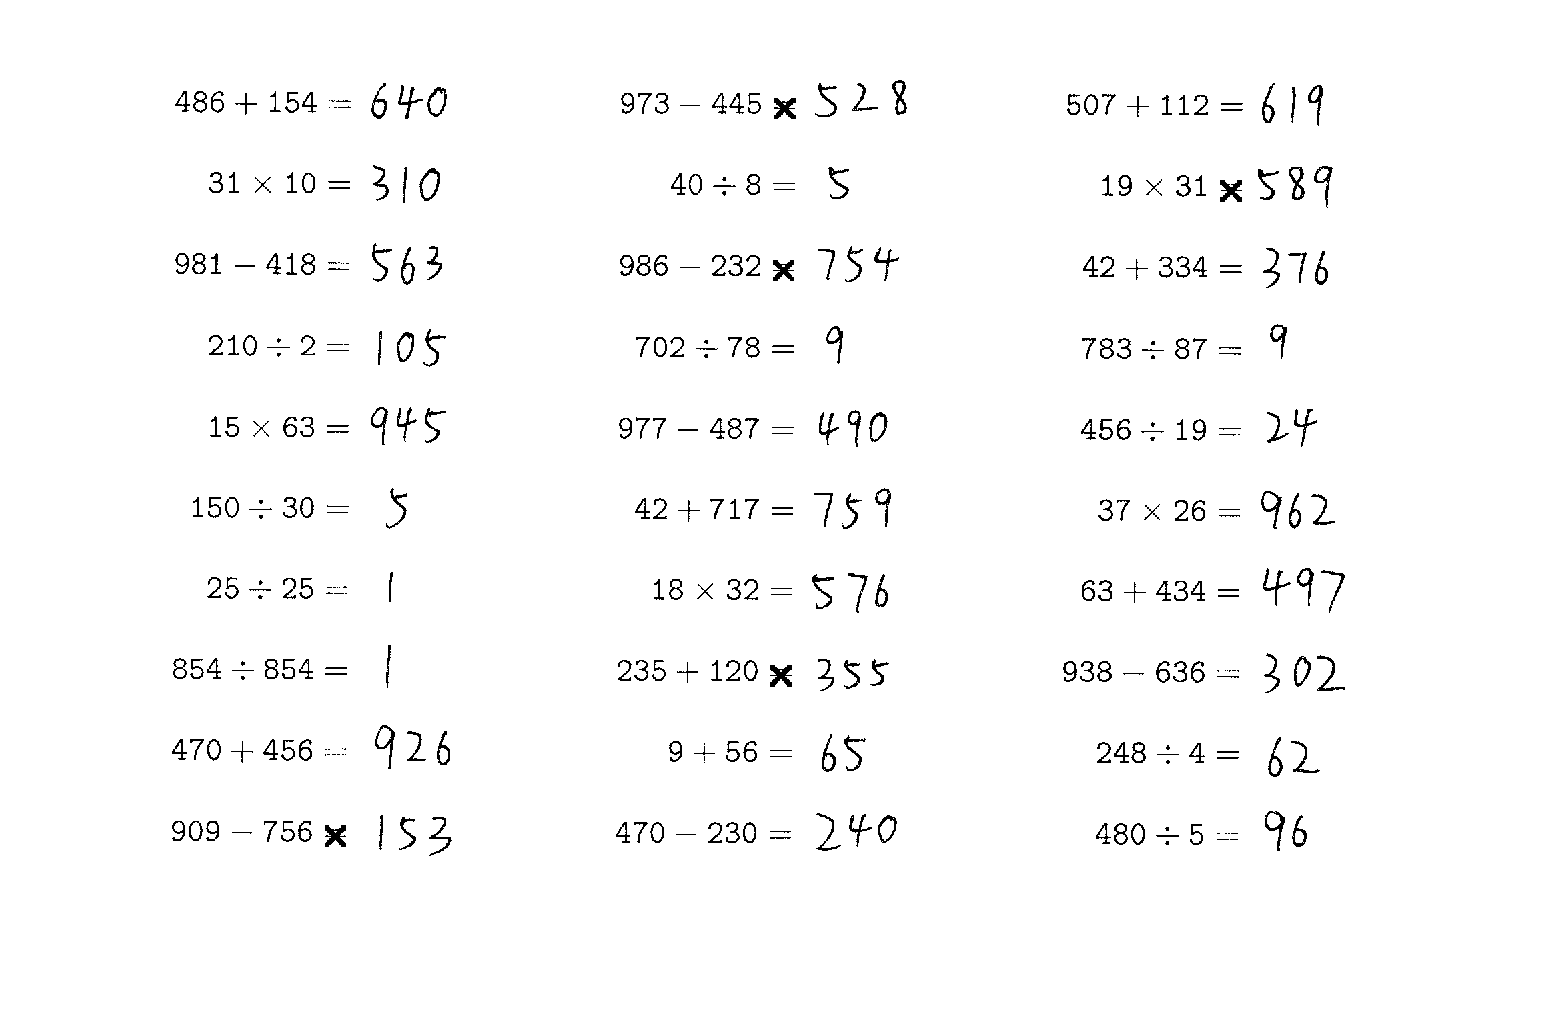 486 + 154 = 640
31 × 10 = 310
981 − 418 = 563
210 ÷ 2 = 105
15 × 63 = 945
150 ÷ 30 = 5
25 ÷ 25 = 1
854 ÷ 854 = 1
470 + 456 = 926
909 − 756 × 153
973 − 445 × 528
40 ÷ 8 = 5
986 − 232 × 754
702 ÷ 78 = 9
977 − 487 = 490
42 + 717 = 759
18 × 32 = 576
235 + 120 × 355
9 + 56 = 65
470 − 230 = 240
507 + 112 = 619
19 × 31 × 589
42 + 334 = 376
783 ÷ 87 = 9
456 ÷ 19 = 24
37 × 26 = 962
63 + 434 = 497
938 − 636 = 302
248 ÷ 4 = 62
480 ÷ 5 = 96